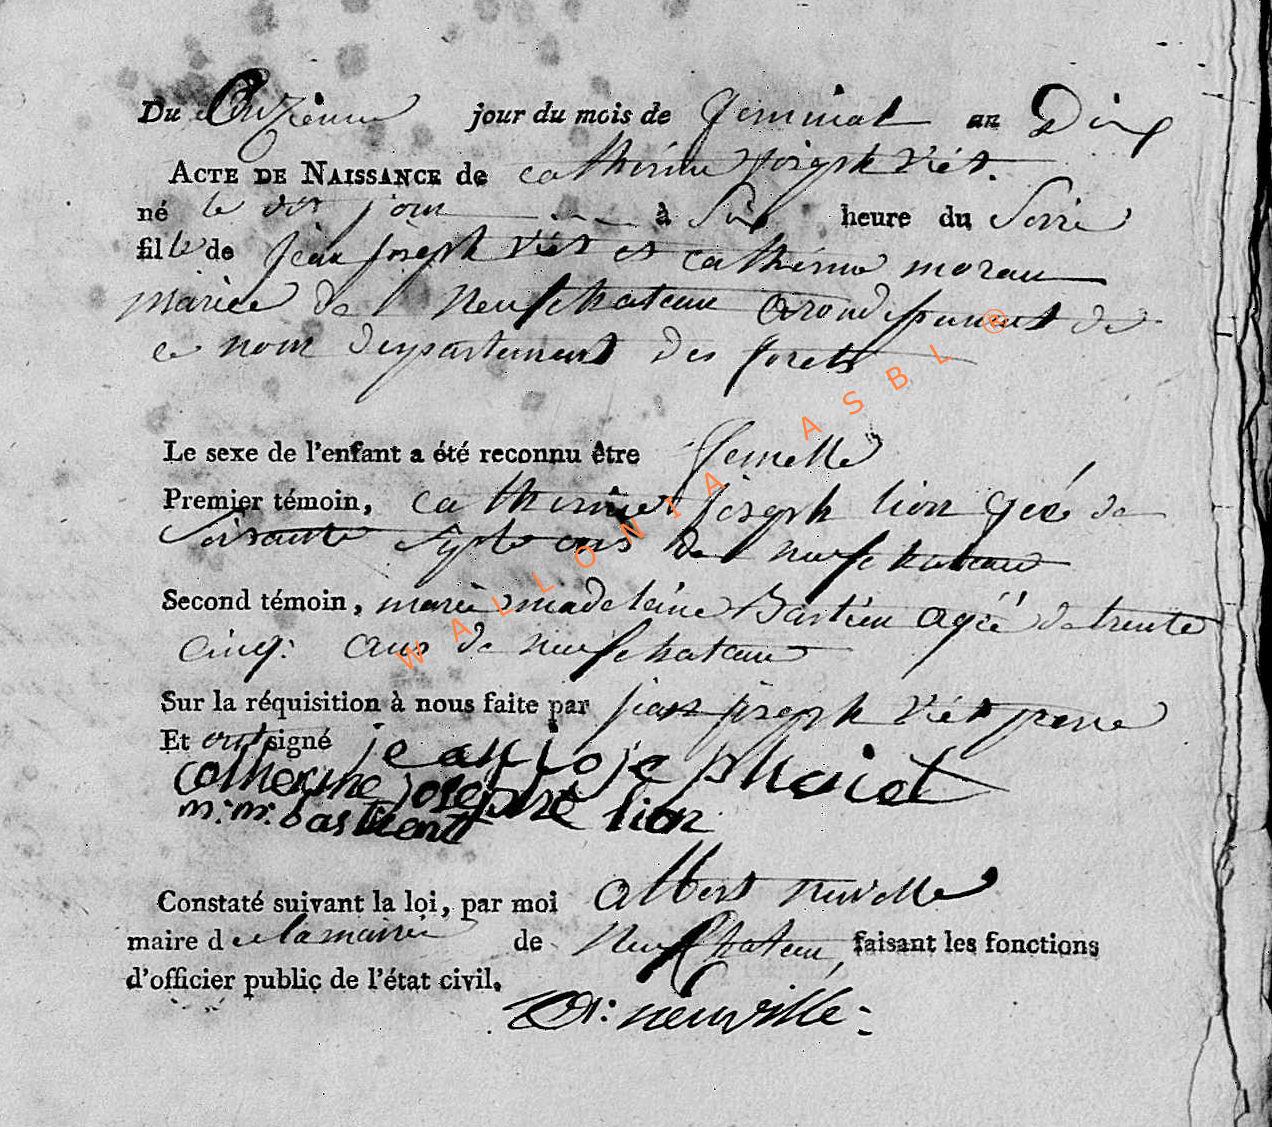 Du Onzieme jour du mois de Germinal an Dix
ACTE DE NAISSANCE de catherine joseph viet.
né le dit jour à Six heure du Soire
fille de jean joseph viet et catherine morau
mariée de neufchateau arondissement de
ce nom departement des forets
Le sexe de l'enfant a été reconnu être femelle
Premier témoin, catherine joseph lion agée de
Soixante Septe ans de neufchateau
Second témoin, marie madeleine Bastien agée de trente
cinq: ans de neufchateau
Sur la réquisition à nous faite par jean joseph viet perre
Et ont signé jean joseph
catherine josephe lion
m: m: bastient
Constaté suivant la loi, par moi albert neuville
maire de la mairie de neufchateau, faisant les fonctions
d'officier public de l'état civil.
neuville
WALLONIA ASBL ®